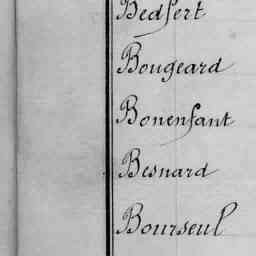 Bedfert
Bougeard
Bonenfant
Besnard
Bourseul